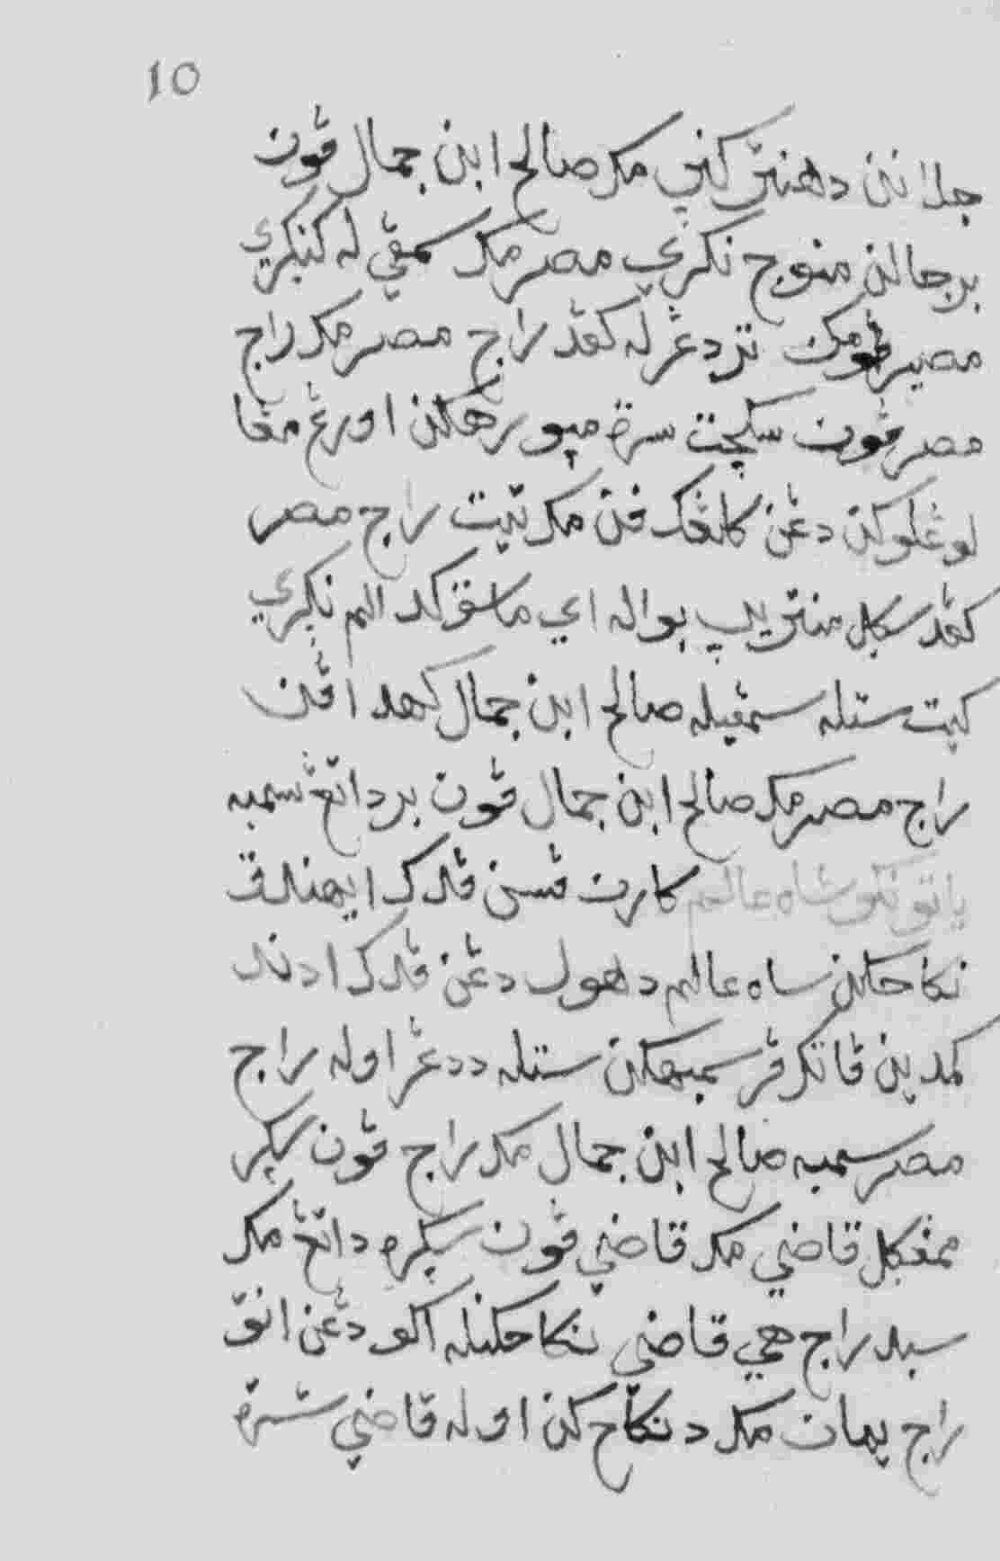 10
جلانن دهنتي كني مك صالح ابن جمال ڤون
برجالن منوج نكري مصر مك سمڤي له كنكري
مصير ڤومك تردڠر له كڤد راج مصر مك راج
مصر ڤون سكچت سرت مپورهكن اورڠ مڠا
لوڠلوكن دڠن كلڠكڤن مك تيت راج مصر
كڤد سكل منتريپ بواله اي ماسق كدالم نكري
كيت ستله سمڤيله صالح ابن جمال كهداڤن
راج مصر مك صالح ابن جمال ڤون برداتڠ سمبه
يا توانكو شاه عالم كارن ڤسن ڤدك ايهندق
نكاحكن شاه عالم دهول دڠن ڤدك ادند
كمدين ڤاتك ڤرسمبهكن ستله ددڠر اوله راج
مصر سمبه صالح ابن جمال مك راج ڤون سكر
ممڠكل قاضي مك قاضي ڤون سكره داتڠ مك
سبد راج هي قاضي نكاحكنله اكو دڠن انق
راج يمان مك دنكاحكن اوله قاضي سرت